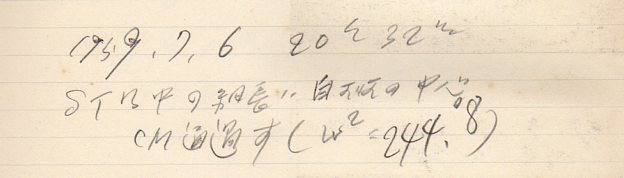 1959.7.6 20h 32m
STB中の細長い白斑の中心
CM通過す (ω²=244.°8)